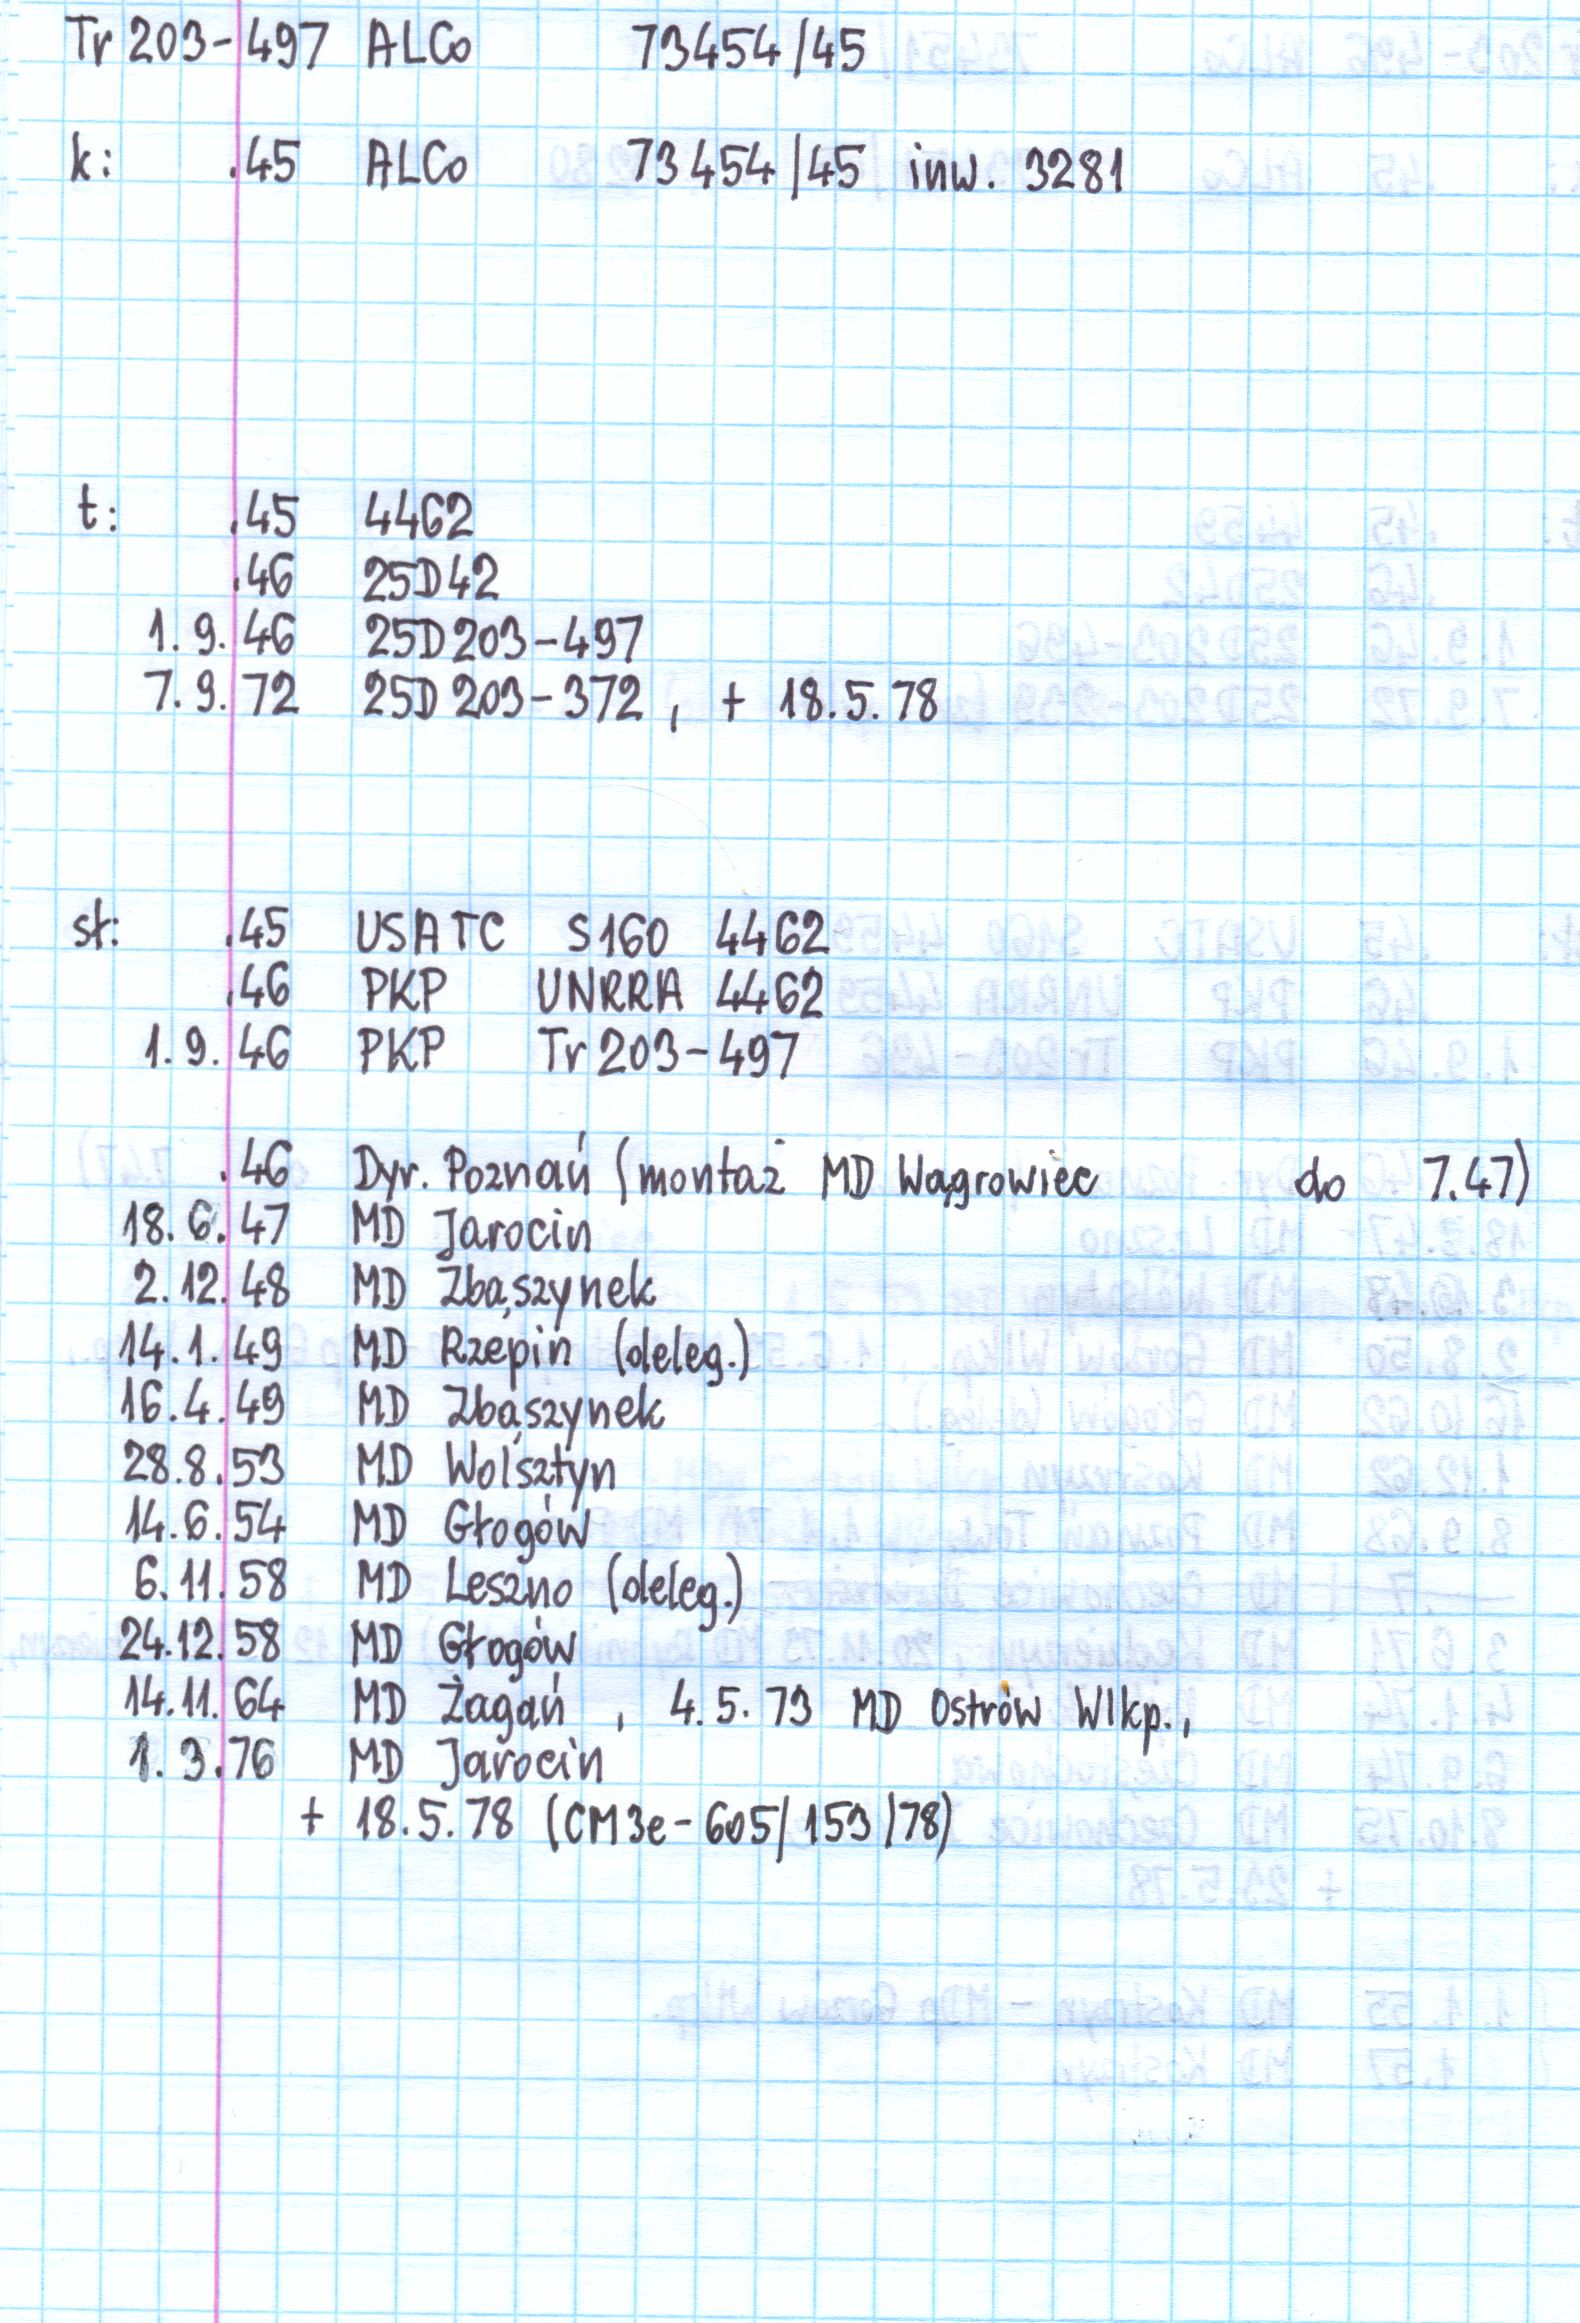 Tr 203-497 ALCo 73454/45
k: .45 ALCo 73454/45 inw. 3281
t: .45 4462
.46 25D42
1.9.46 25D203-497
7.9.72 25D203-372, + 18.5.78
st: .45 USATC S160 4462
.46 PKP UNRRA 4462
1.9.46 PKP Tr203-497
.46 Dyr. Poznań (montaż MD Wągrowiec do 7.47)
18.6.47 MD Jarocin
2.12.48 MD Zbąszynek
14.1.49 MD Rzepin (deleg.)
16.4.49 MD Zbąszynek
28.8.53 MD Wolsztyn
14.6.54 MD Głogów
6.11.58 MD Leszno (deleg.)
24.12.58 MD Głogów
14.11.64 MD Żagań, 4.5.73 MD Ostrów Wlkp.,
1.3.76 MD Jarocin
+ 18.5.78 (CM3e-605/153/78)